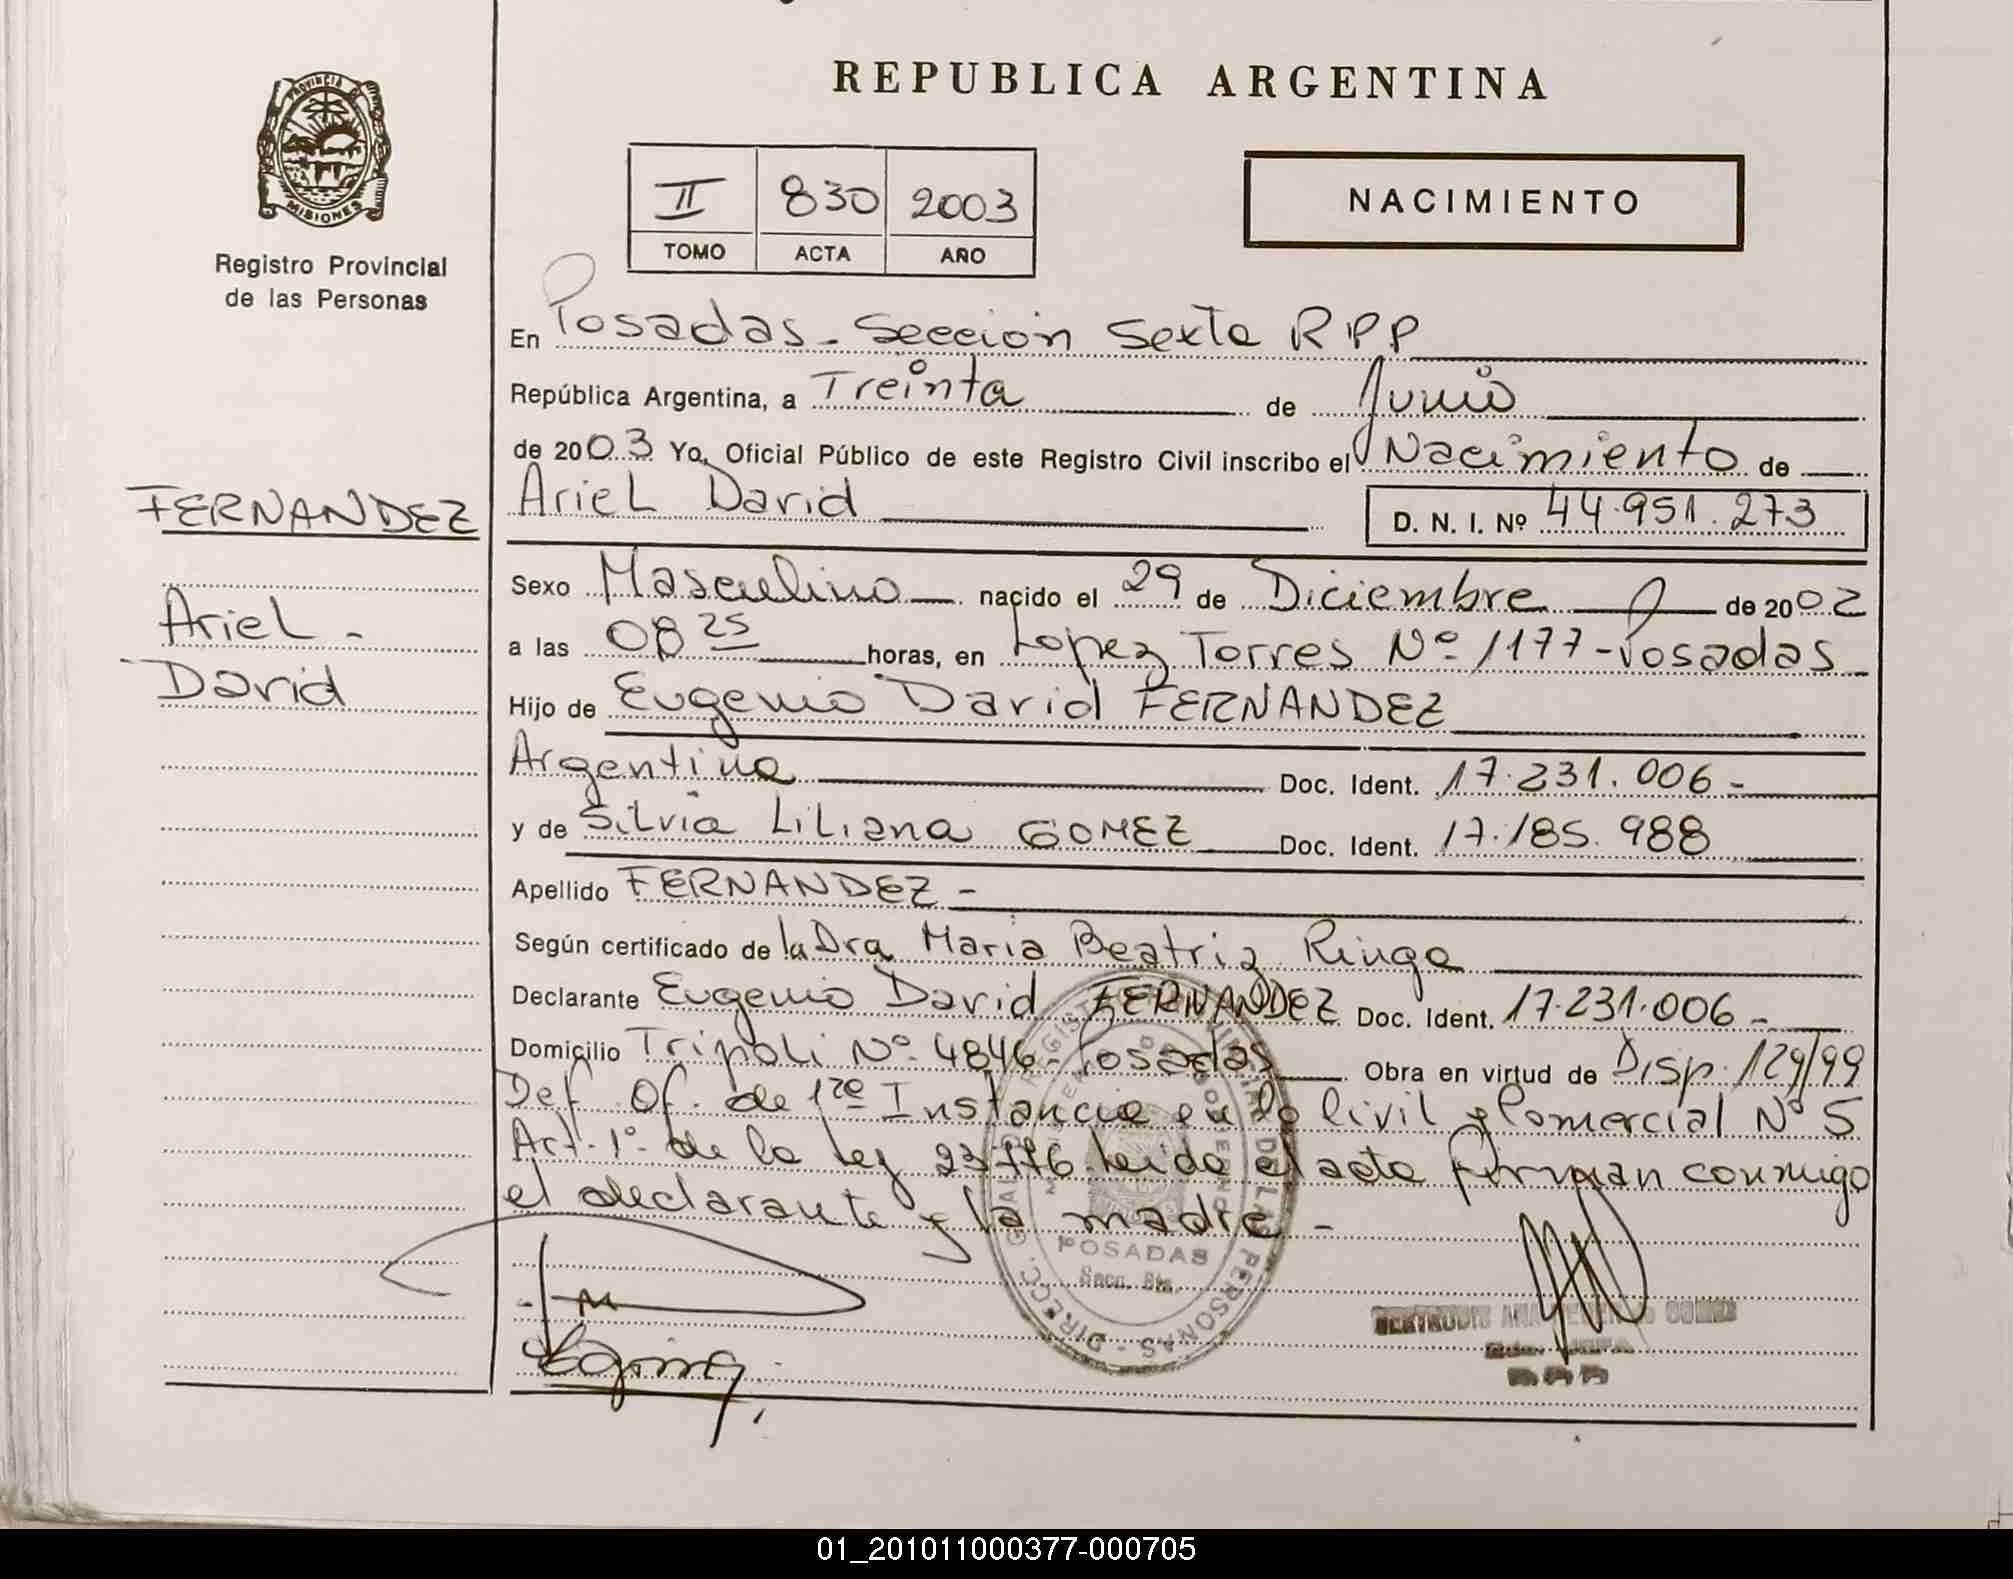 REPUBLICA ARGENTINA
PROVINCIA DE
MISIONES
Registro Provincial
de las Personas
II 830 2003
TOMO ACTA AÑO
NACIMIENTO
En Posadas - Sección Sexta RPP
República Argentina, a Treinta de Junio
de 2003 Yo, Oficial Público de este Registro Civil inscribo el Nacimiento de
FERNANDEZ
Ariel David D. N. I. Nº 44.951.273
Sexo Masculino nacido el 29 de Diciembre de 2002
Ariel -
David
a las 08 25 horas, en Lopez Torres Nº 1177 - Posadas
Hijo de Eugenio David FERNANDEZ
Argentina Doc. Ident. 17.231.006 -
y de Silvia Liliana GOMEZ Doc. Ident. 17.185.988
Apellido FERNANDEZ -
Según certificado de la Dra Maria Beatriz Ringa
Declarante Eugenio David FERNANDEZ Doc. Ident. 17.231.006 -
Domicilio Tripoli Nº 4846 - Posadas Obra en virtud de Disp. 129/99
Def. Of. de 1ra Instancia en lo Civil y Comercial Nº 5
Art. 1º de la Ley 23776 leida el acta firman conmigo
el declarante y la madre -
POSADAS
Secc. 6ta.
01_201011000377-000705